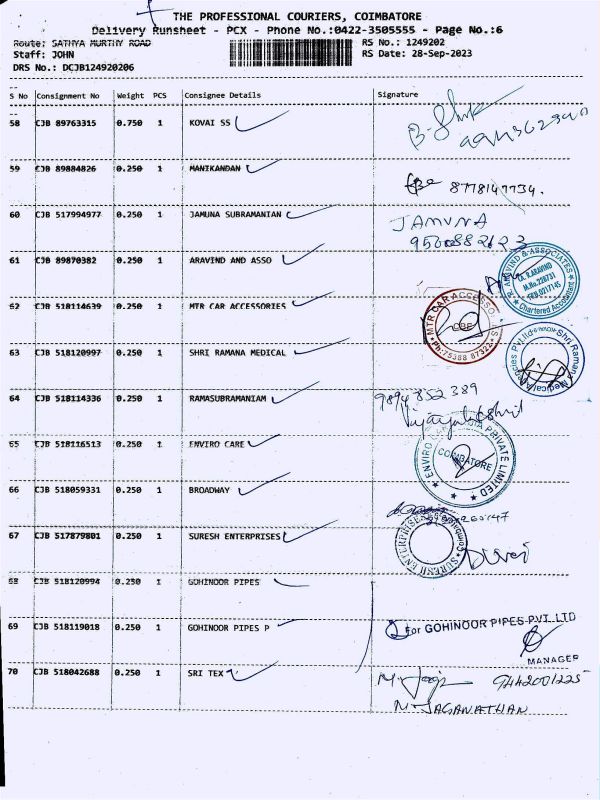 THE PROFESSIONAL COURIERS, COIMBATORE
Delivery Runsheet - PCX - Phone No.:0422-3505555 - Page No.:6
Route: SATHYA MURTHY ROAD RS No.: 1249202
Staff: JOHN RS Date: 28-Sep-2023
DRS No.: DCJB124920206
S No Consignment No Weight PCS Consignee Details Signature
58 CJB 89763315 0.750 1 KOVAI SS
59 CJB 89884826 0.250 1 MANIKANDAN
8778147734.
60 CJB 517994977 0.250 1 JAMUNA SUBRAMANIAN JAMUNA
61 CJB 89870382 0.250 1 ARAVIND AND ASSO
R. ARAVIND & ASSOCIATES
CA. R.ARAVIND
Chartered Accountant
62 CJB 518114639 0.250 1 MTR CAR ACCESSORIES
MTR CAR ACCESSO
CBE
63 CJB 518120997 0.250 1 SHRI RAMANA MEDICAL
Shri Ramana Medical Agencies Pvt.Ltd
64 CJB 518114336 0.250 1 RAMASUBRAMANIAM 9894852389
65 CJB 518116513 0.250 1 ENVIRO CARE
ENVIRO PRIVATE LIMITED
COIMBATORE
66 CJB 518059331 0.250 1 BROADWAY
67 CJB 517879801 0.250 1 SURESH ENTERPRISES
SURESH ENTERPRISES
68 CJB 518120994 0.250 1 GOHINOOR PIPES
69 CJB 518119018 0.250 1 GOHINOOR PIPES P For GOHINOOR PIPES PVT. LTD
MANAGER
70 CJB 518042688 0.250 1 SRI TEX 9442001225
N. JAGANATHAN